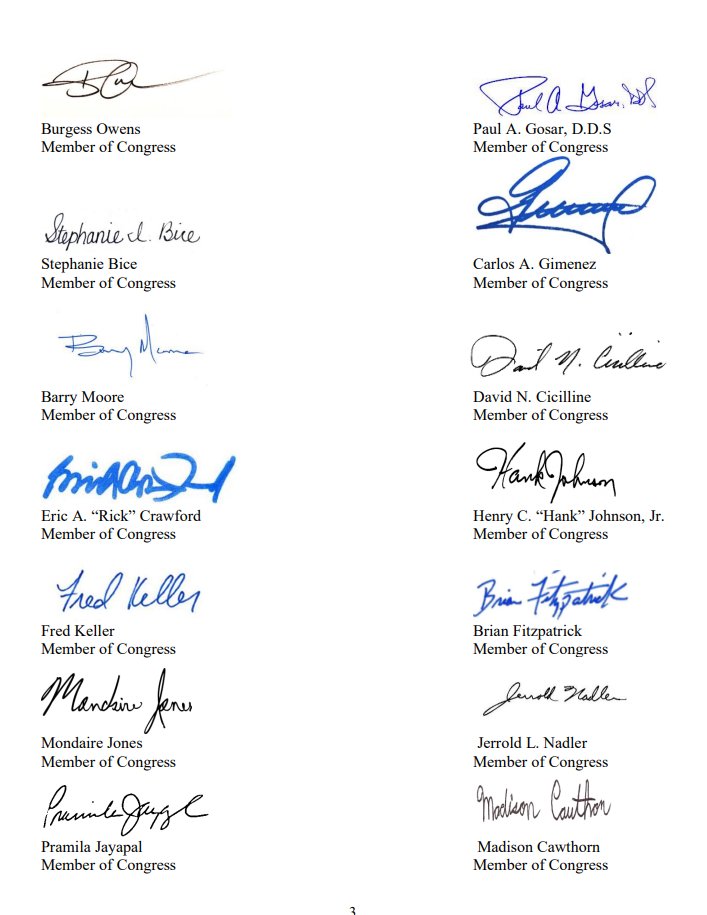 Burgess Owens
Member of Congress
Paul A Gosar, DDS
Paul A. Gosar, D.D.S
Member of Congress
Stephanie I. Bice
Stephanie Bice
Member of Congress
Carlos A. Gimenez
Member of Congress
Barry Moore
Barry Moore
Member of Congress
David N. Cicilline
David N. Cicilline
Member of Congress
Eric A. “Rick” Crawford
Member of Congress
Hank Johnson
Henry C. “Hank” Johnson, Jr.
Member of Congress
Fred Keller
Fred Keller
Member of Congress
Brian Fitzpatrick
Brian Fitzpatrick
Member of Congress
Mondaire Jones
Mondaire Jones
Member of Congress
Jerrold Nadler
Jerrold L. Nadler
Member of Congress
Pramila Jayapal
Member of Congress
Madison Cawthorn
Madison Cawthorn
Member of Congress
3